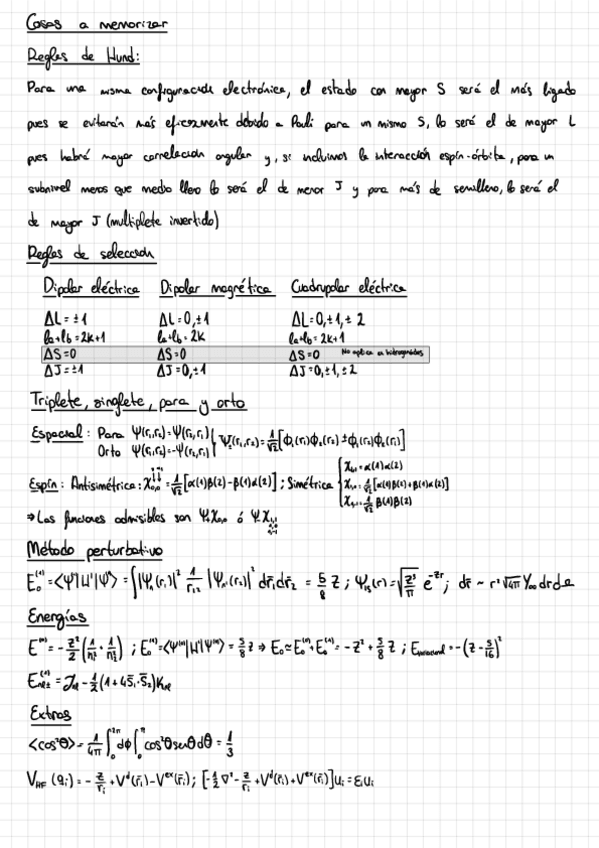 Cosas a memorizar
Reglas de Hund:
Para una misma configuración electrónica, el estado con mayor S será el más ligado
pues se evitarán más eficazmente debido a Pauli para un mismo S, lo será el de mayor L
pues habrá mayor correlación angular y, si incluimos la interacción espín-órbita, para un
subnivel menos que medio lleno lo será el de menor J y para más de semilleno, lo será el
de mayor J (multiplete invertido)
Reglas de selección
Dipolar eléctrica Dipolar magnética Cuadrupolar eléctrica
ΔL = ±1 ΔL=0,±1 ΔL=0,±1,±2
la+lb=2k+1 la+lb=2k la+lb=2k+1
ΔS=0 ΔS=0 ΔS=0 No aplica a hidrogenoides
ΔJ=±1 ΔJ=0,±1 ΔJ=0,±1,±2
Triplete, singlete, para y orto
Espacial: Para Ψ(r₁,r₂)=Ψ(r₂,r₁)
Orto Ψ(r₁,r₂)=-Ψ(r₂,r₁) } Ψ±(r₁,r₂)=1/√2[ϕ₁(r₁)ϕ₂(r₂)±ϕ₁(r₂)ϕ₂(r₁)]
Espín: Antisimétrica: χ₀,₀=1/√2[α(1)β(2)-β(1)α(2)]; Simétrica { χ₁,₁=α(1)α(2)
χ₁,₀=1/√2[α(1)β(2)+β(1)α(2)]
β(1)β(2)
⇒ Las funciones admisibles son Ψ₊χ₀,₀ ó Ψ₋χ₁,₁
Método perturbativo
E₀⁽¹⁾=<Ψ|H'|Ψ>=∫|Ψ(r₁)|² 1/r₁₂ |Ψ(r₂)|² dr̄₁dr̄₂ = 5/8 Z; Ψ₁s(r)=√(Z³/π) e^(-Zr); dr̄ ~ r²√4π Y₀₀ dr dΩ
Energías
E⁽⁰⁾=-Z²/2(1/n₁²+1/n₂²); E₀⁽¹⁾=<Ψ⁽⁰⁾|H'|Ψ⁽⁰⁾>=5/8 Z ⇒ E₀≃E₀⁽⁰⁾+E₀⁽¹⁾=-Z²+5/8 Z; E variacional=-(Z-5/16)²
E⁽¹⁾nl±=Jnl-1/2(1+4S̄₁·S̄₂)Knl
Extras
<cos²θ>=1/4π∫₀^2π dϕ∫₀^π cos²θ senθ dθ=1/3
V_HF(qᵢ)=-Z/rᵢ+Vᵈ(r̄ᵢ)-Vᵉˣ(r̄ᵢ); [-1/2∇²-Z/rᵢ+Vᵈ(r̄ᵢ)+Vᵉˣ(r̄ᵢ)]uᵢ=εᵢuᵢ